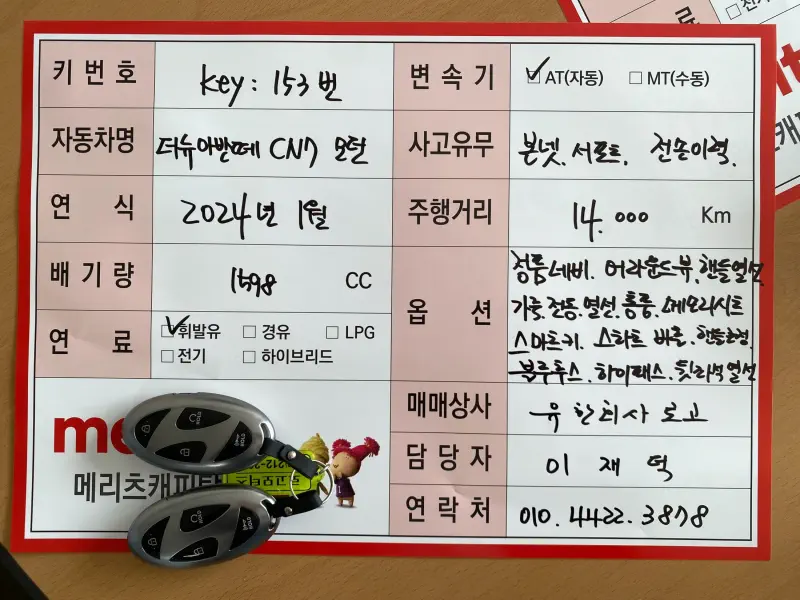 키번호 key: 153번
변속기 ☑ AT(자동) □ MT(수동)
자동차명 더뉴아반떼 CN7 모던
사고유무 본넷. 서포트. 전손이력.
연식 2024년 1월
주행거리 14.000 Km
배기량 1598 CC
옵션 정품네비. 어라운드뷰. 핸들열선
가죽.전동.열선.통풍.메모리시트
스마트키. 스타트 버튼.
블루투스. 하이패스. 뒷좌석열선
연료 ☑ 휘발유 □ 경유 □ LPG
□ 전기 □ 하이브리드
매매상사 유한회사 로고
담당자 이재덕
연락처 010.4422.3878
me
메리츠캐피탈